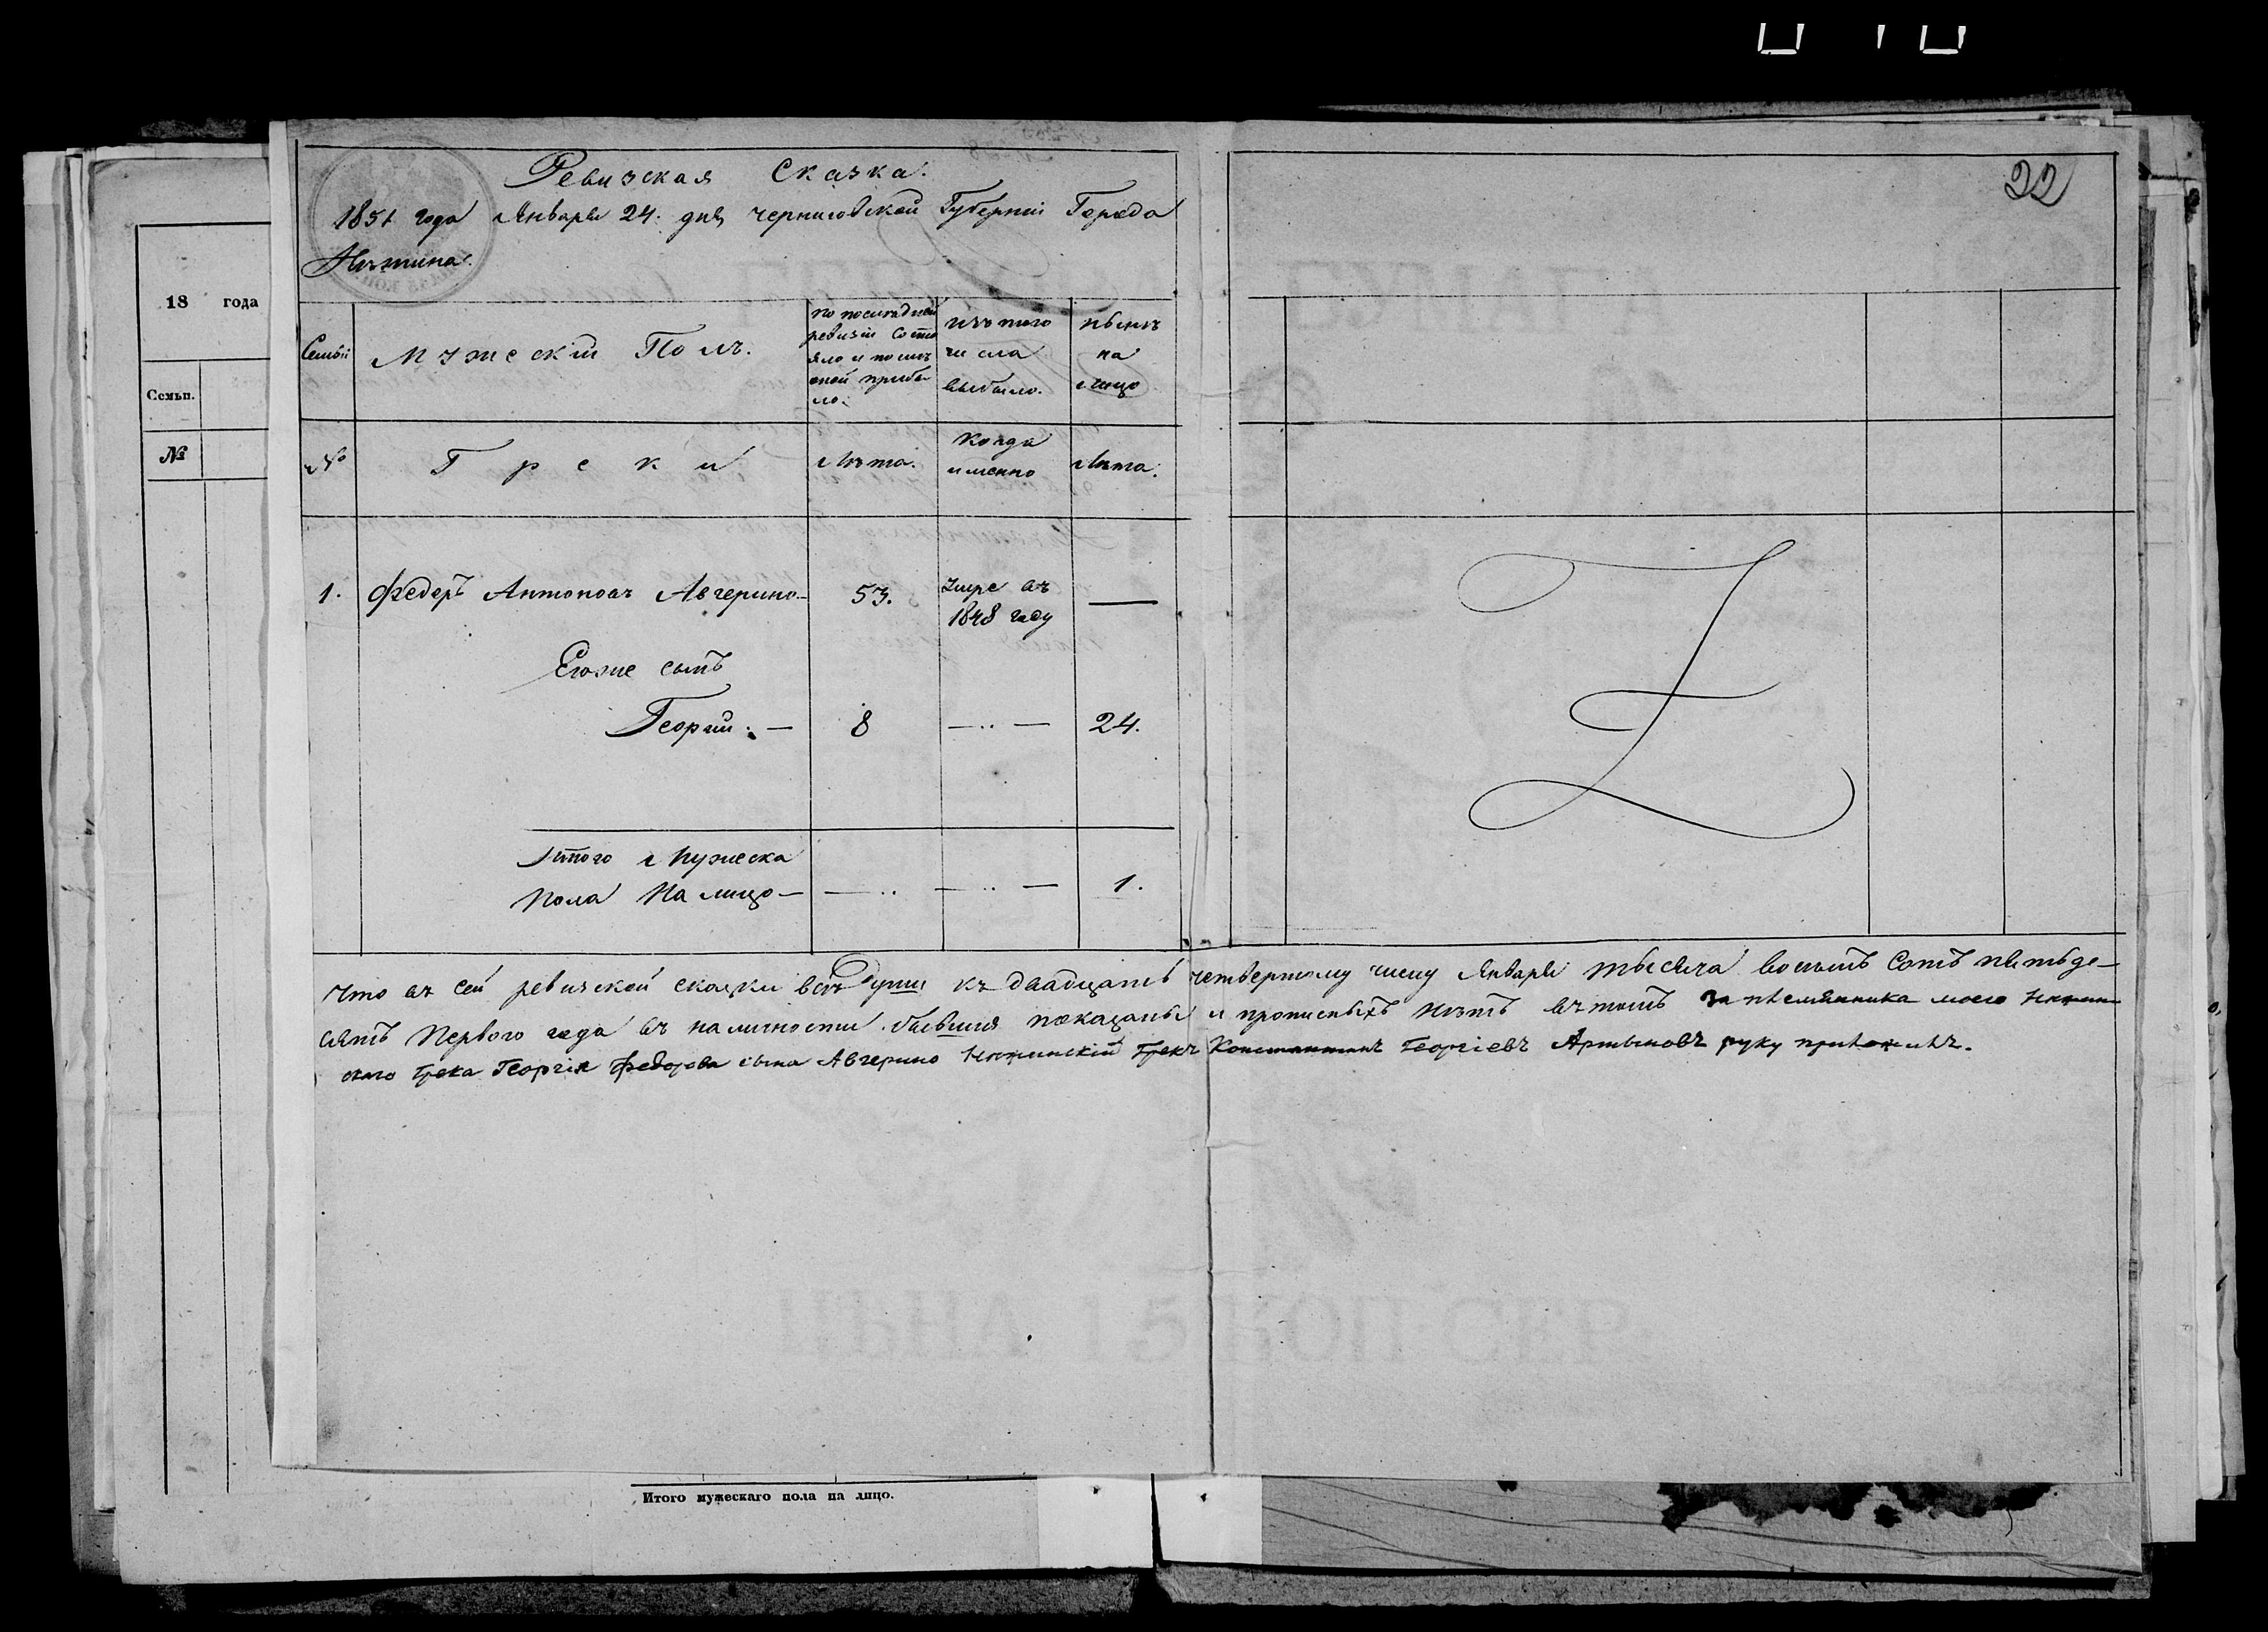 22
Ревизская Сказка.
1851 года Января 24. дня черниговской Губернии Города
Нѣжина.
18 года
Семьи
Мужескій Полъ.
по послѣдней ревизіи состояло и послѣ оной прибыло.
изъ того числа выбыло.
нынѣ на лицо
Семьи.
№
№
Греки
Лѣта.
Когда именно
Лѣта.
1. Федоръ Антоновъ Авгерино— 53. Умре въ 1848 году —
Егоже сынъ
Георгий. — 8 — ·· — 24.
Итого Мужеска
Пола На лицо — — ·· — ·· — 1.
Что въ сей ревизской сказки всѣ души къ двадцать четвертому числу Января тысяча восемь сотъ пятьде-
сятъ Первого года въ наличности бывшия показаны и прописныхъ нѣтъ въ томъ за племянника моего Нѣжин-
скаго Грека Георгія Федорова сына Авгерино Нѣжинскій Грекъ Константинъ Георгіевъ Артыновъ руку приложилъ.
Итого мужескаго пола на лицо.